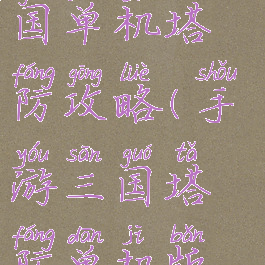 国单机塔
fáng gōng lüè shǒu
防攻略(手
yóu sān guó tǎ
游三国塔
fáng dān jī bǎn
防单机版